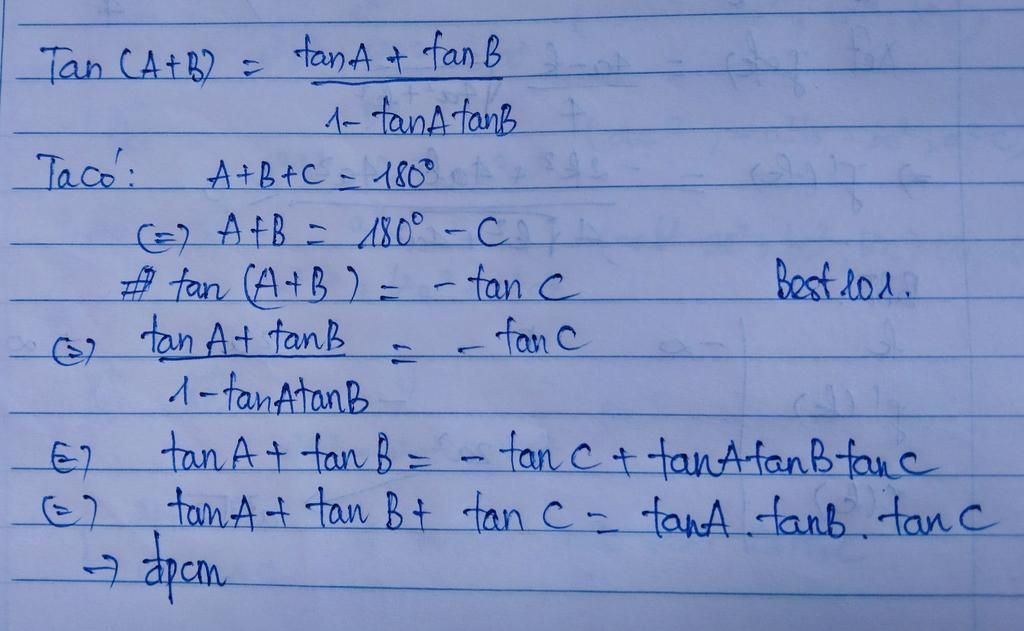 Tan (A+B) = tanA + tanB / 1 - tanA tanB
Ta có: A+B+C = 180°
(=) A+B = 180° - C
tan (A+B) = - tan C
Best 101.
(=) tan A + tanB / 1 - tanAtanB = - tan C
(=) tan A + tan B = - tan C + tanAtanB tan C
(=) tanA + tan B + tan C = tanA . tanB . tan C
→ đpcm